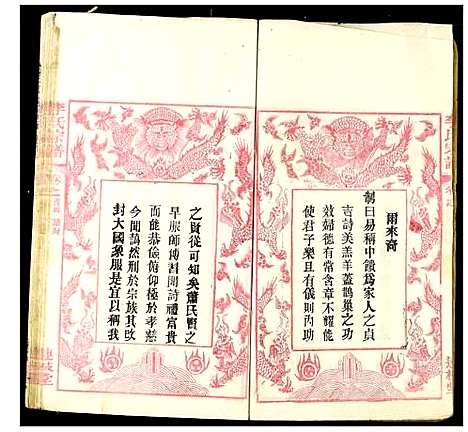 李氏宗譜
爾來裔
制曰易稱中饋為家人之貞
吉詩美羔羊蓋鵲巢之功
效婦德有常含章不耀能
使君子樂且有儀則內助
之賢從可知矣蕭氏賢之
早服師傅習聞詩禮富貴
而能恭儉俯仰極於孝慈
今聞藹然刑於宗族其改
封大國象服是宜以稱我
李氏宗譜